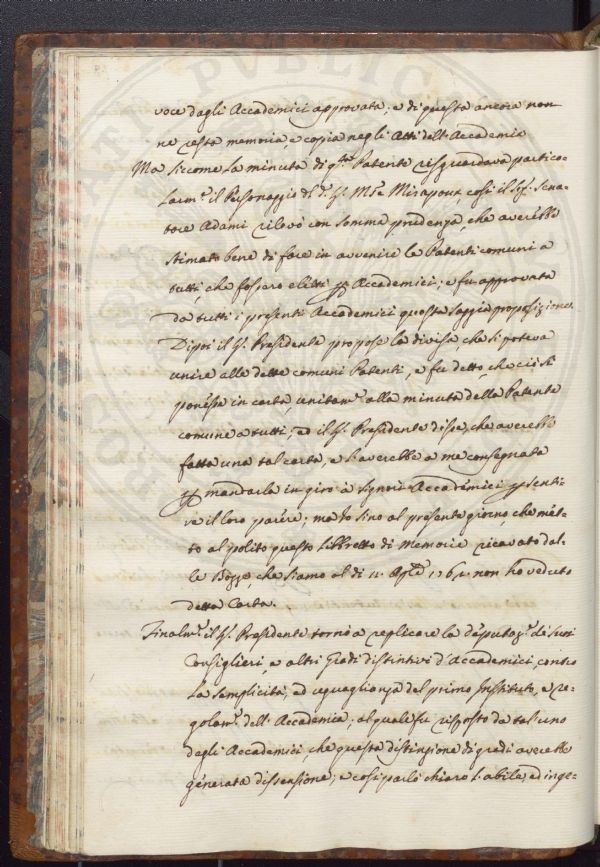 voce dagli Accademici approvata; e di questa ancora non
ne resta memoria, e copia negli Atti dell' Accademia
Ma siccome la minuta di q.ta Patente risguardava partico-
larm.e il Personaggio del Sig. Mirapoux, così il Sig. Sena-
tore Adami rilevò con somma prudenza, che averebbe
stimato bene di fare in avvenire le Patenti comuni a
tutti, che fossero eletti p Accademici; e fu approvata
da tutti i presenti Accademici questa saggia proposizione.
Dipoi il Sig. Presidente propose la divisa, che si poteva
unire alle dette comuni Patenti, e fu detto, che ciò si
ponesse in carta, unitam.e alla minuta della Patente
comune a tutti; e il Sig. Presidente disse, che averebbe
fatta una tal carta, e l'averebbe a me consegnata
p mandarla in giro a Signori Accademici p senti-
re il loro parere; ma Io sino al presente giorno, che met-
to al polito questo Libretto di Memorie ricavato dal-
le Bozze, che siamo al di 11 Ap.le 176 non ho veduto
detta Carta.
Finalm.e il Sig. Presidente tornò a replicare la deputaz.e de suoi
Consiglieri, e altri Gradi distintivi d'Accademici, contro
la semplicità, ed uguaglianza del primo Instituto, e re-
golam.o dell' Accademia; al quale fu risposto da tal uno
degli Accademici, che questa distinzione di gradi averebbe
generata dissensione; e così parlò chiaro l'abile, ed inge-